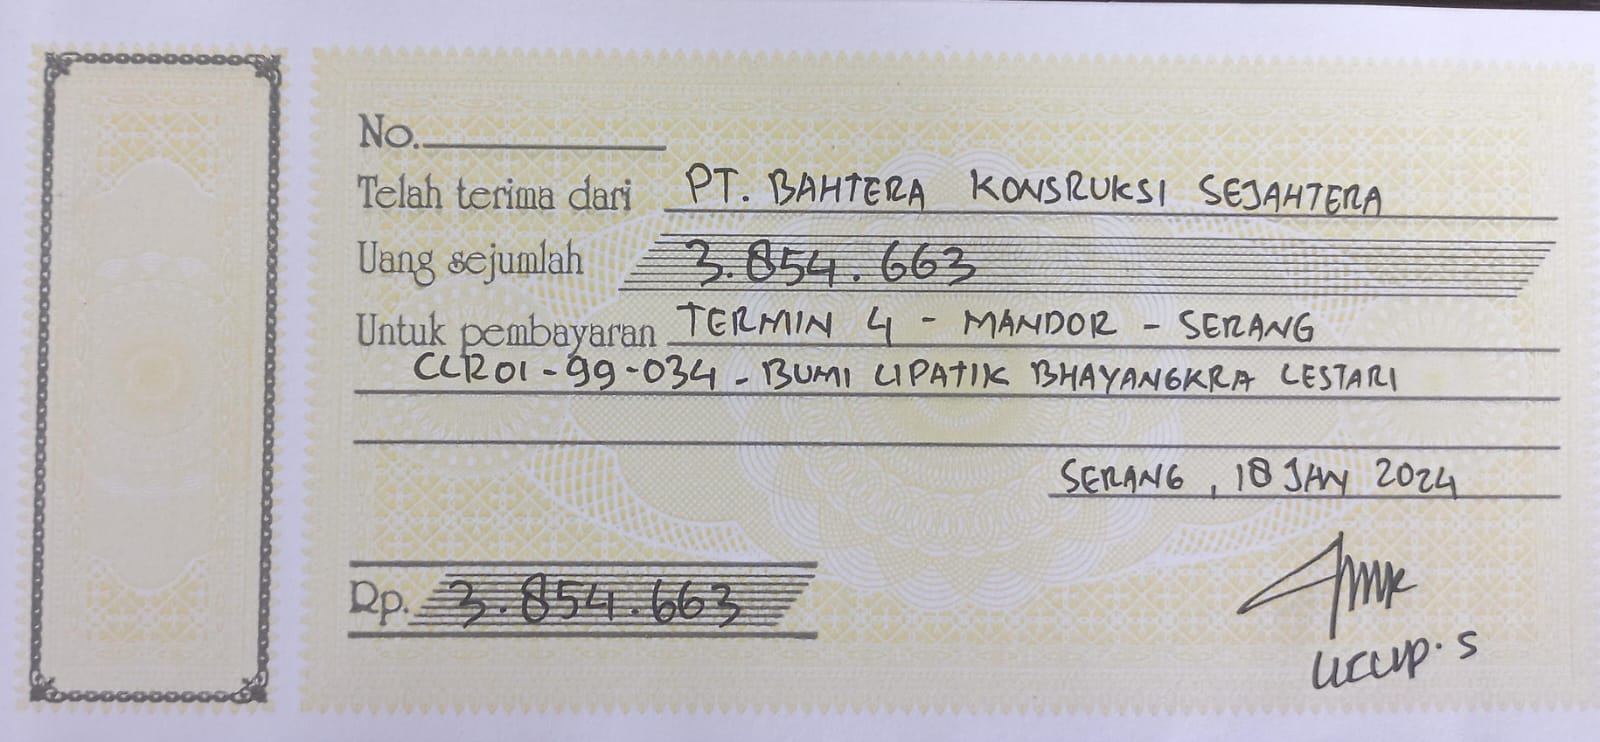 No.
Telah terima dari PT. BAHTERA KONSRUKSI SEJAHTERA
Uang sejumlah 3.854.663
Untuk pembayaran TERMIN 4 - MANDOR - SERANG
CLR01-99-034 - BUMI LIPATIK BHAYANGKRA LESTARI
SERANG, 18 JAN 2024
Rp. 3.854.663
UCUP. S